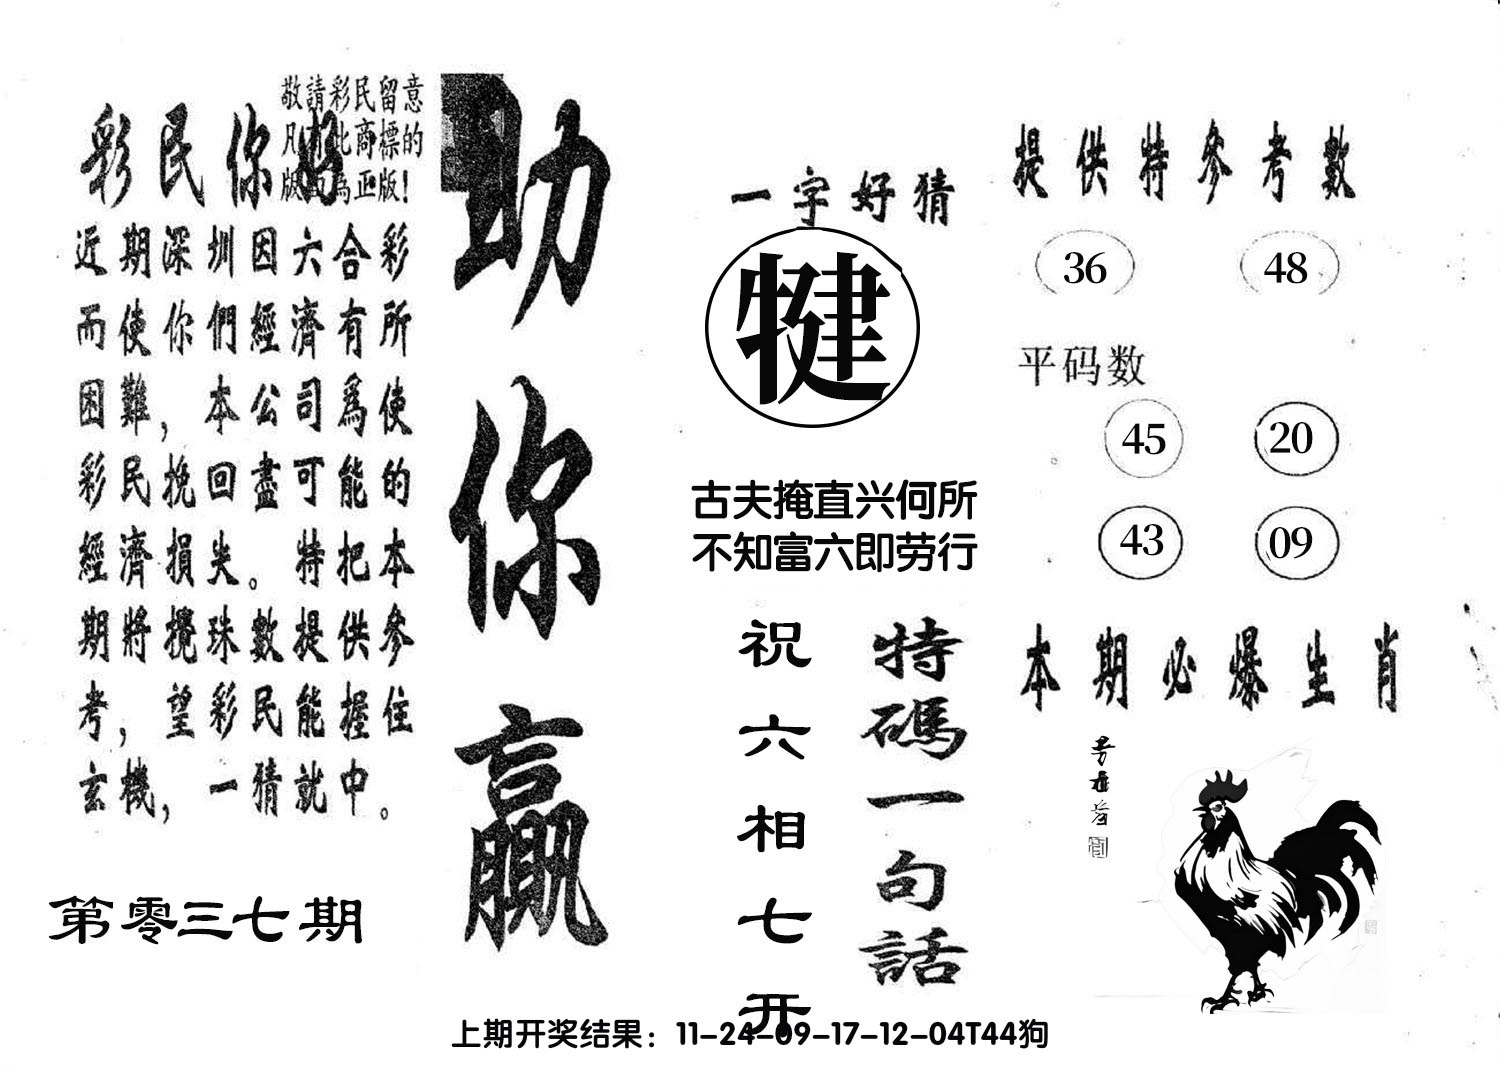 敬請彩民留意
凡有此商標的
版面為正版!
彩民你好
近期深圳因六合彩
而使你們經濟有所
困難，本公司為使
彩民挽回盡可能的
經濟損失。特把本
期將攪珠數提供參
考，望彩民能握住
玄機，一猜就中。
第零三七期
助你贏
一字好猜
犍
古夫掩直兴何所
不知富六即劳行
特碼一句話
祝六相七开
提供特參考數
36 48
平码数
45 20
43 09
本期必爆生肖
上期开奖结果：11-24-09-17-12-04T44狗